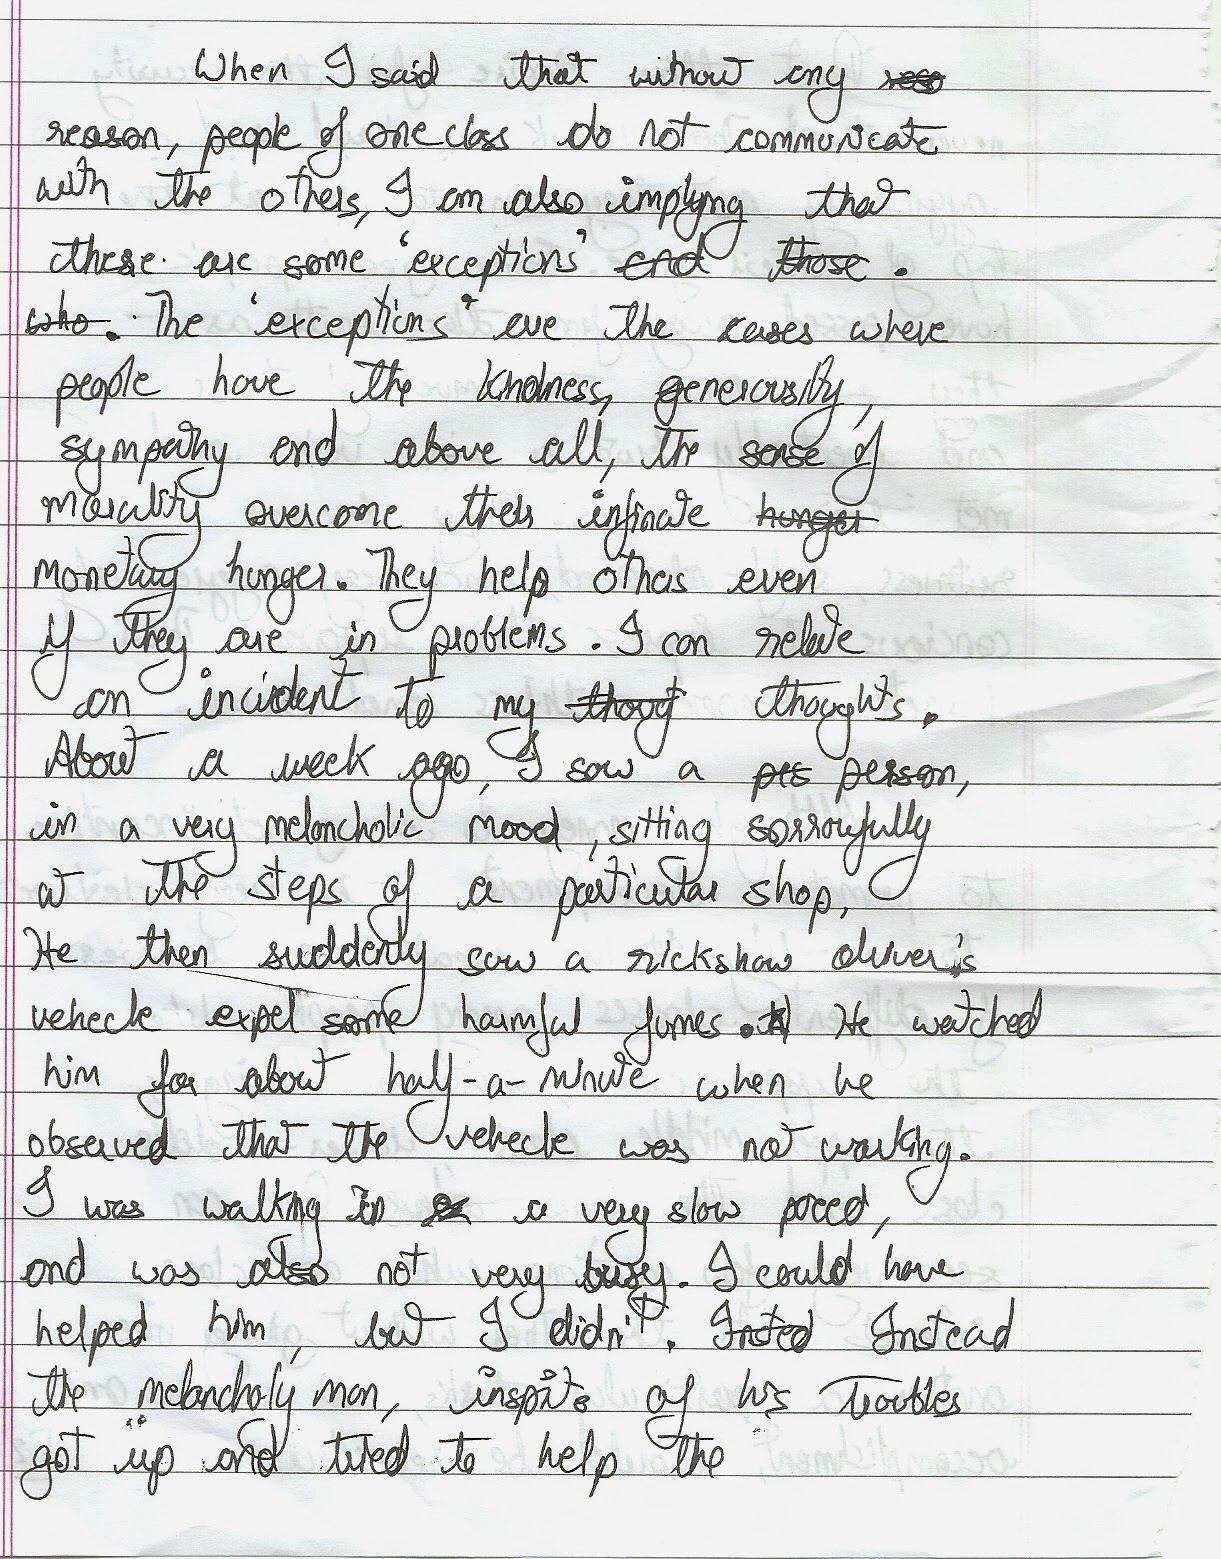 When I said that without any reso
reason, people of one class do not communicate
with the others, I am also implying that
these are some 'exceptions' and those .
who. The 'exceptions' are the cases where
people have the kindness, generousity,
sympathy and above all, the sense of
morality overcome their infinate hunger
monetary hunger. They help others even
if they are in problems. I can relate
an incident to my thougt thoughts.
About a week ago, I saw a pes person,
in a very meloncholic mood, sitting sorrowfully
at the steps of a particular shop,
He then suddenly saw a rickshaw driver's
vehecle expel some harmful fumes. He watched
him for about half-a-minute when he
observed that the vehecle was not working.
I was walking in a very slow paced,
and was also not very busy. I could have
helped him, but I didn't. Insted Instead
the melancholy man, inspite of his troubles
got up and tried to help the